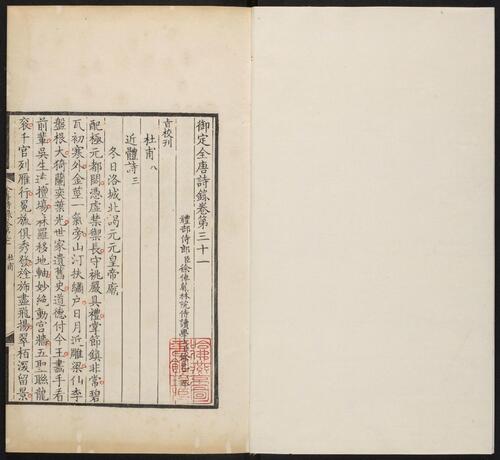 御定全唐詩錄卷第三十一
禮部侍郎臣徐倬翰林院侍讀學
奇校刊
杜甫八
近體詩三
冬日洛城北謁元元皇帝廟
配極元都閟憑虛禁御長守祧嚴具禮掌節鎮非常碧
瓦初寒外金莖一氣旁山河扶繡戶日月近雕梁仙李
盤根大猗蘭奕葉光世家遺舊史道德付今王畫手看
前輩吳生遠擅場森羅移地軸妙絕動宮牆五聖聯龍
袞千官列雁行冕旒俱秀發旌旆盡飛揚翠柏深留景
杜甫